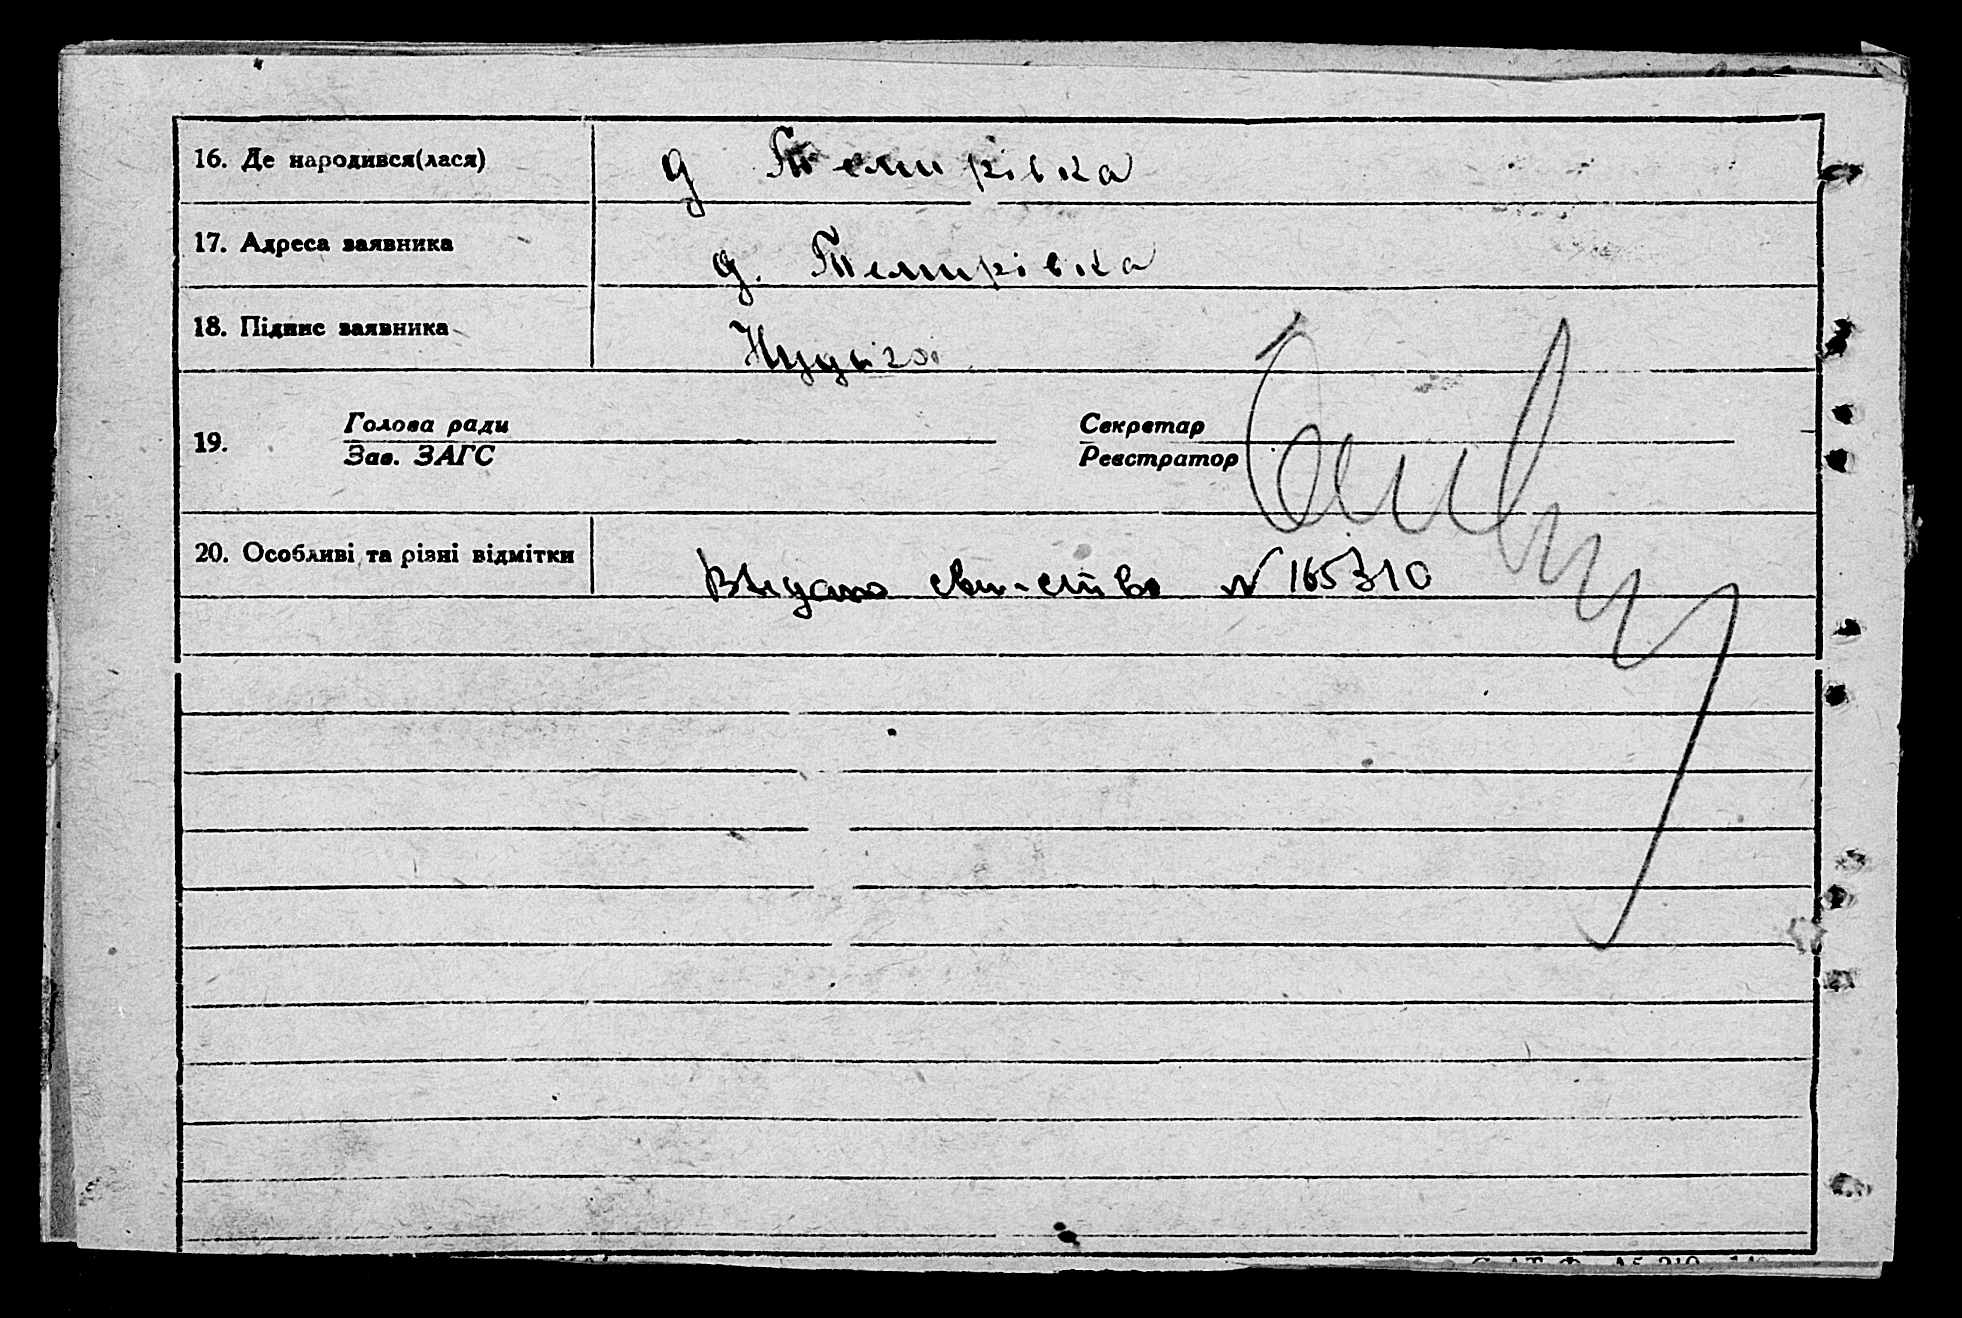 16. Де народився(лася) д Темирівка
17. Адреса заявника д. Темирівка
18. Підпис заявника
19. Голова ради Секретар
Зав. ЗАГС Реєстратор
20. Особливі та різні відмітки Выдано сви-ство № 165310